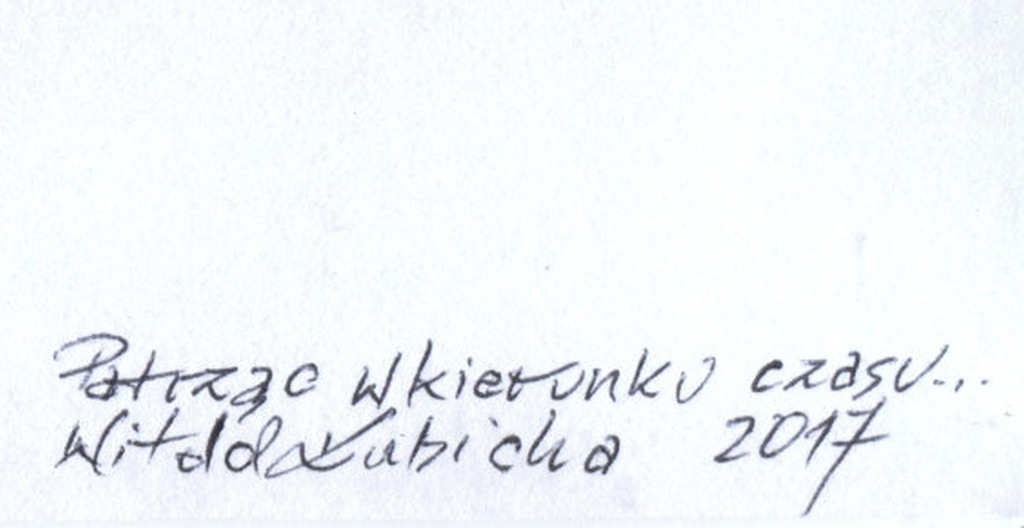 Patrząc w kierunku czasu...
Witold Kubicha 2017